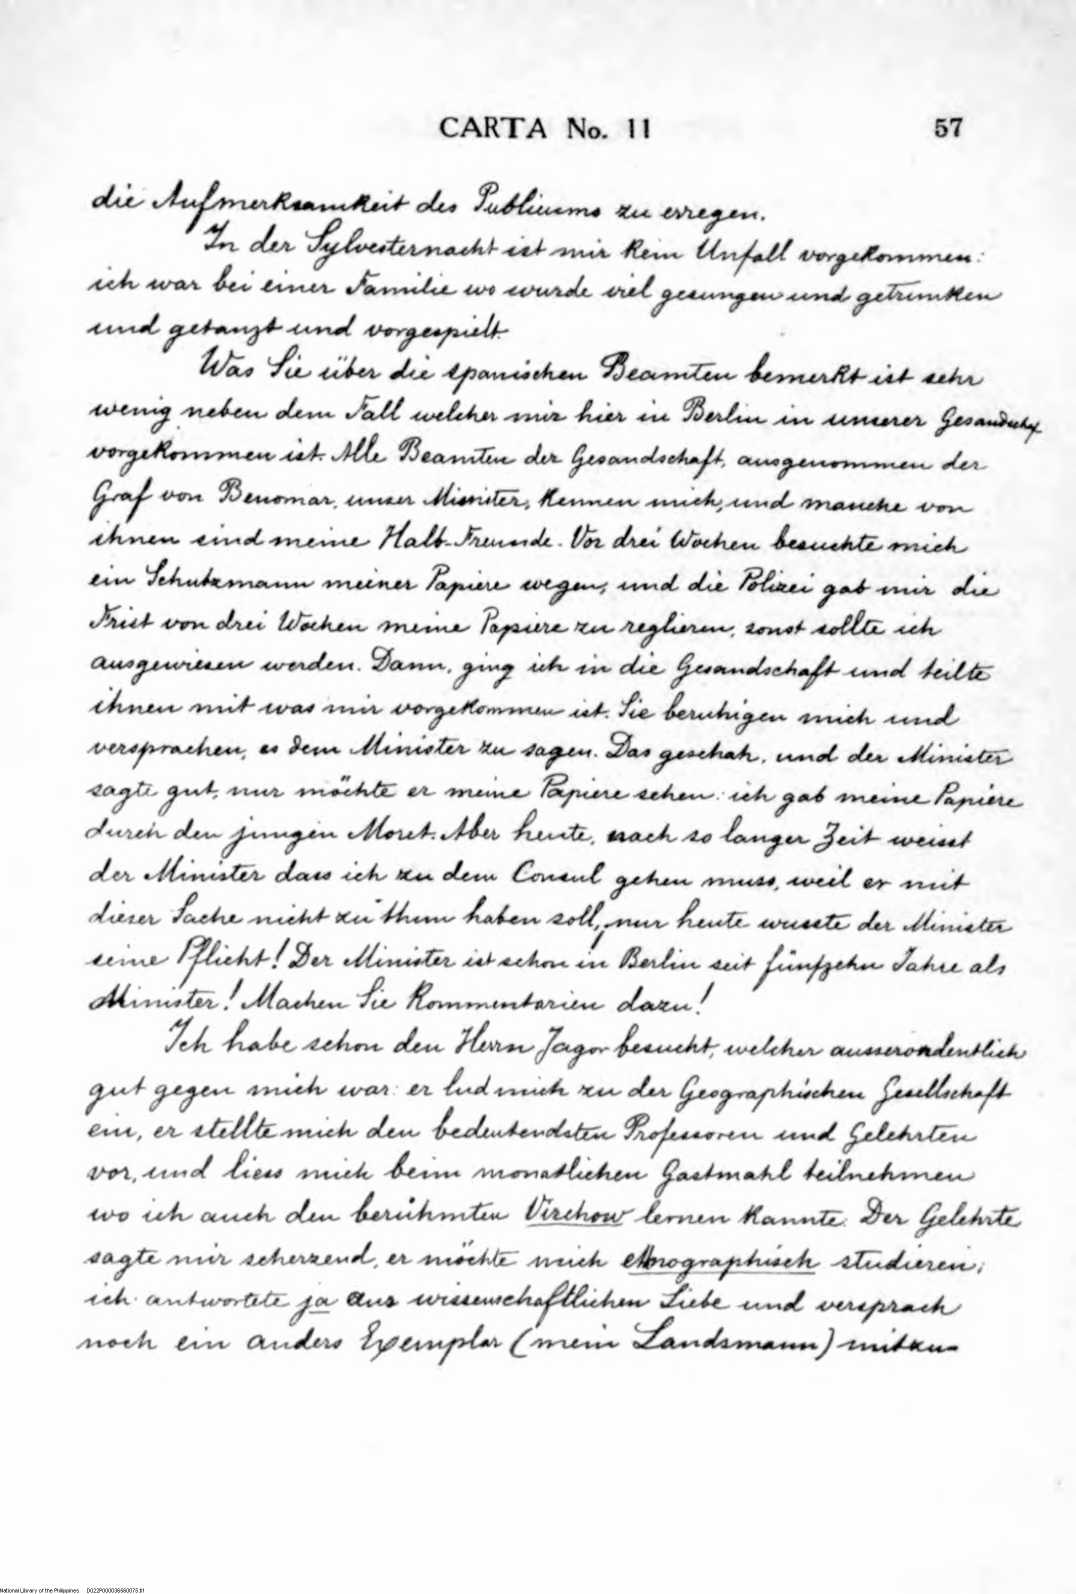 CARTA No. 11 57
die Aufmerksamkeit des Publicums zu erregen.
In der Sylvesternacht ist mir kein Unfall vorgekommen:
ich war bei einer Familie wo wurde viel gesungen und getrunken
und getanzt und vorgespielt.
Was Sie über die spanischen Beamten bemerkt ist sehr
wenig neben dem Fall welcher mir hier in Berlin in unserer Gesandschaf
vorgekommen ist. Alle Beamten der Gesandschaft, ausgenommen der
Graf von Benomar, unser Minister, kennen mich, und manche von
ihnen sind meine Halb-Freunde. Vor drei Wochen besuchte mich
ein Schutzmann meiner Papiere wegen, und die Polizei gab mir die
Frist von drei Wochen meine Papiere zu reglieren, sonst sollte ich
ausgewiesen werden. Dann, ging ich in die Gesandschaft und teilte
ihnen mit was mir vorgekommen ist. Sie beruhigen mich und
versprachen, es dem Minister zu sagen. Das geschah, und der Minister
sagte gut, nur möchte er meine Papiere sehen: ich gab meine Papiere
durch den jungen Moret. Aber heute, nach so langer Zeit weisst
der Minister dass ich zu dem Consul gehen muss, weil er mit
dieser Sache nicht zu thun haben soll, nur heute wusste der Minister
seine Pflicht! Der Minister ist schon in Berlin seit fünfzehn Jahre als
Minister! Machen Sie Kommentarien dazu!
Ich habe schon den Herrn Jagor besucht, welcher ausserordentlich
gut gegen mich war: er lud mich zu der Geographischen Gesellschaft
ein, er stellte mich den bedeutendsten Professoren und Gelehrten
vor, und liess mich beim monatlichen Gastmahl teilnehmen
wo ich auch den berühmten Virchow lernen kannte. Der Gelehrte
sagte mir scherzend, er möchte mich ethnographisch studieren;
ich antwortete ja aus wissenschaftlichen Liebe und versprach
noch ein anders Exemplar (mein Landsmann) mitzu-
National Library of the Philippines